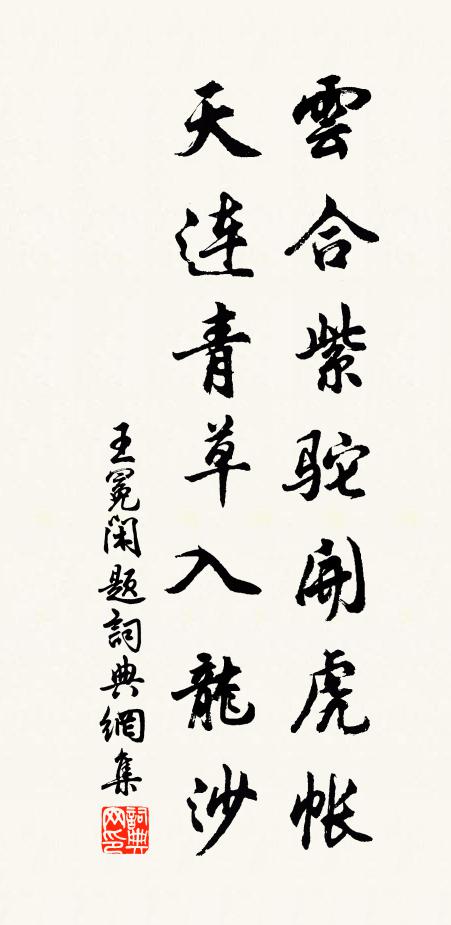 雲合紫駝開虎帐
天连青草入龍沙
王冕閑題詞典網集
詞典网印